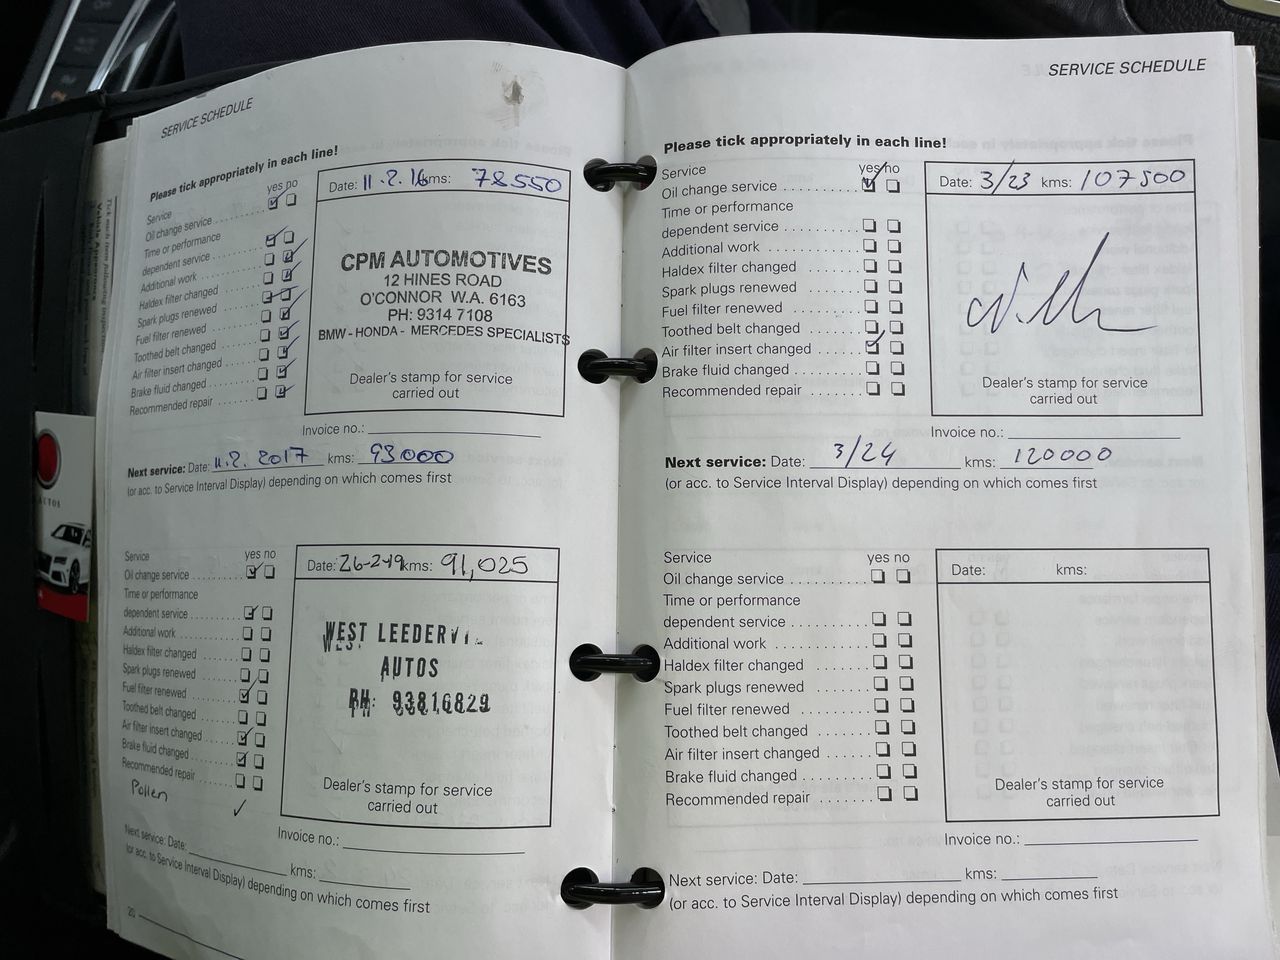 SERVICE SCHEDULE
Please tick appropriately in each line!
yes no
Service
Oil change service
Time or performance
dependent service
Additional work
Haldex filter changed
Spark plugs renewed
Fuel filter renewed
Toothed belt changed
Air filter insert changed
Brake fluid changed
Recommended repair
Date: 11.2.16 kms: 78550
CPM AUTOMOTIVES
12 HINES ROAD
O'CONNOR W.A. 6163
PH: 9314 7108
BMW - HONDA - MERCEDES SPECIALISTS
Dealer's stamp for service
carried out
Invoice no.:
Next service: Date: 11.2.2017 kms: 93000
(or acc. to Service Interval Display) depending on which comes first
Service yes no
Oil change service
Time or performance
dependent service
Additional work
Haldex filter changed
Spark plugs renewed
Fuel filter renewed
Toothed belt changed
Air filter insert changed
Brake fluid changed
Recommended repair
Pollen
Date: 26-2-19 kms: 91,025
WEST
AUTOS
PH: 93816829
Dealer's stamp for service
carried out
Invoice no.:
Next service: Date: kms:
(or acc. to Service Interval Display) depending on which comes first
20
SERVICE SCHEDULE
Please tick appropriately in each line!
Service yes no
Oil change service
Time or performance
dependent service
Additional work
Haldex filter changed
Spark plugs renewed
Fuel filter renewed
Toothed belt changed
Air filter insert changed
Brake fluid changed
Recommended repair
Date: 3/23 kms: 107500
Dealer's stamp for service
carried out
Invoice no.:
Next service: Date: 3/24 kms: 120000
(or acc. to Service Interval Display) depending on which comes first
Service yes no
Oil change service
Time or performance
dependent service
Additional work
Haldex filter changed
Spark plugs renewed
Fuel filter renewed
Toothed belt changed
Air filter insert changed
Brake fluid changed
Recommended repair
Date: kms:
Dealer's stamp for service
carried out
Invoice no.:
Next service: Date: kms:
(or acc. to Service Interval Display) depending on which comes first
AUTOS